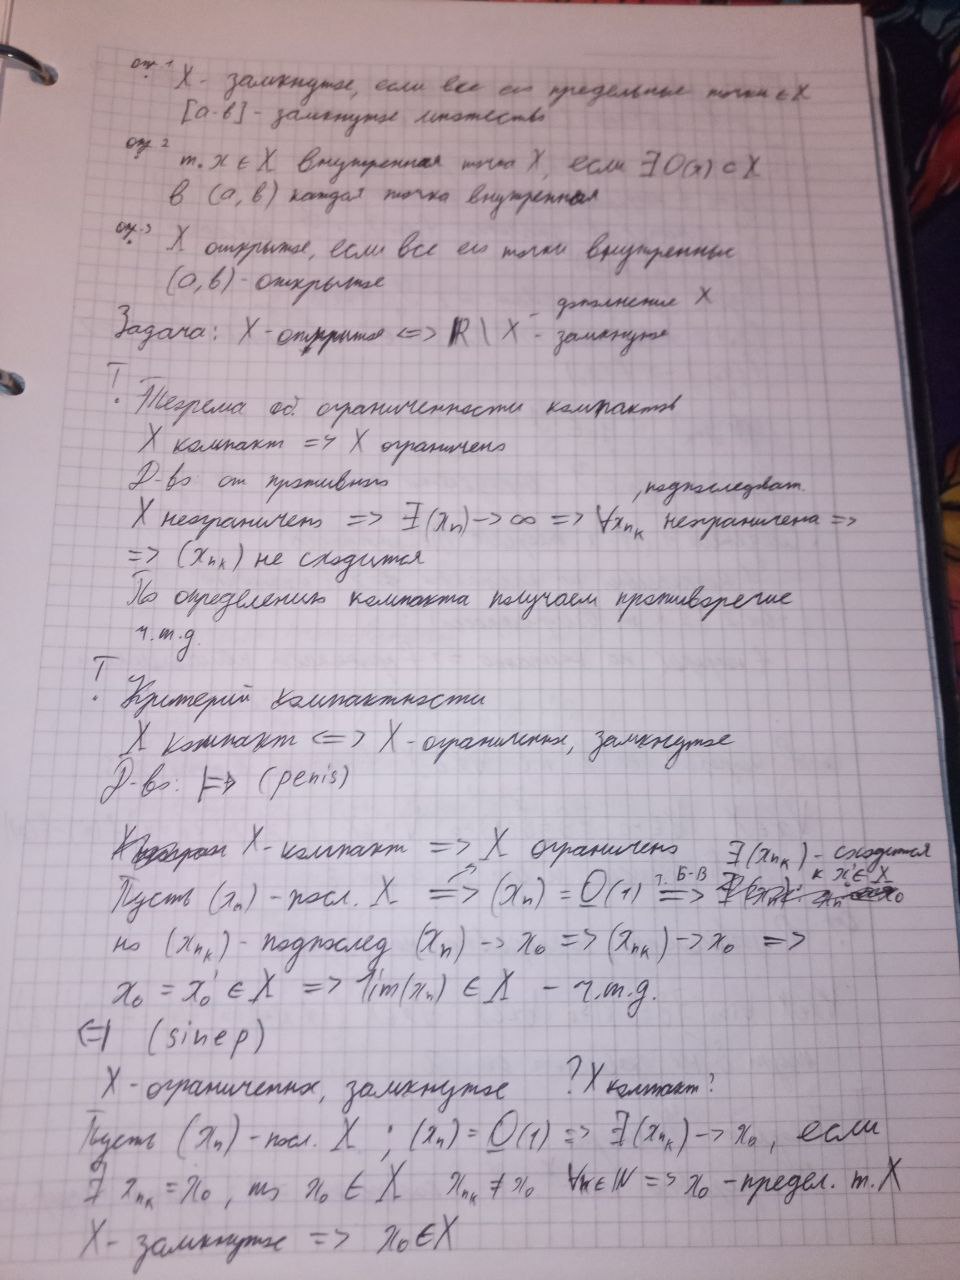 опр. 1 X - замкнутое, если все его предельные точки ∈ X
[a·b] - замкнутое множество
опр. 2 т. x ∈ X внутренная точка X, если ∃ O(x) ⊂ X
в (a, b) каждая точка внутренная
опр. 3 X открытое, если все его точки внутренные
(a, b) - открытое
Задача: X - открытое <=> ℝ \ X - замкнутое
- дополнение X
T. Теорема об ограниченности компактов
X компакт => X ограничено
Д-во: от противного
X неограничено => ∃(xₙ) -> ∞ => ∀xₙₖ неограничена =>
, подпоследоват.
=> (xₙₖ) не сходится
По определению компакта получаем противоречие
ч.т.д.
T. Критерий компактности
X компакт <=> X - ограниченное, замкнутое
Д-во: |=> (penis)
X - компакт => X ограничено ∃(xₙₖ) - сходится
к x'₀ ∈ X
Пусть (xₙ) - посл. X => (xₙ) = O(1) т. Б-В =>
но (xₙₖ) - подпослед (xₙ) -> x₀ => (xₙₖ) -> x₀ =>
x₀ = x'₀ ∈ X => lim(xₙ) ∈ X - ч.т.д.
<=| (sinep)
X - ограниченное, замкнутое ? X компакт ?
Пусть (xₙ) - посл. X ; (xₙ) = O(1) => ∃(xₙₖ) -> x₀, если
∃ xₙₖ = x₀, то x₀ ∈ X xₙₖ ≠ x₀ ∀k∈ℕ => x₀ - предел. т. X
X - замкнутое => x₀ ∈ X